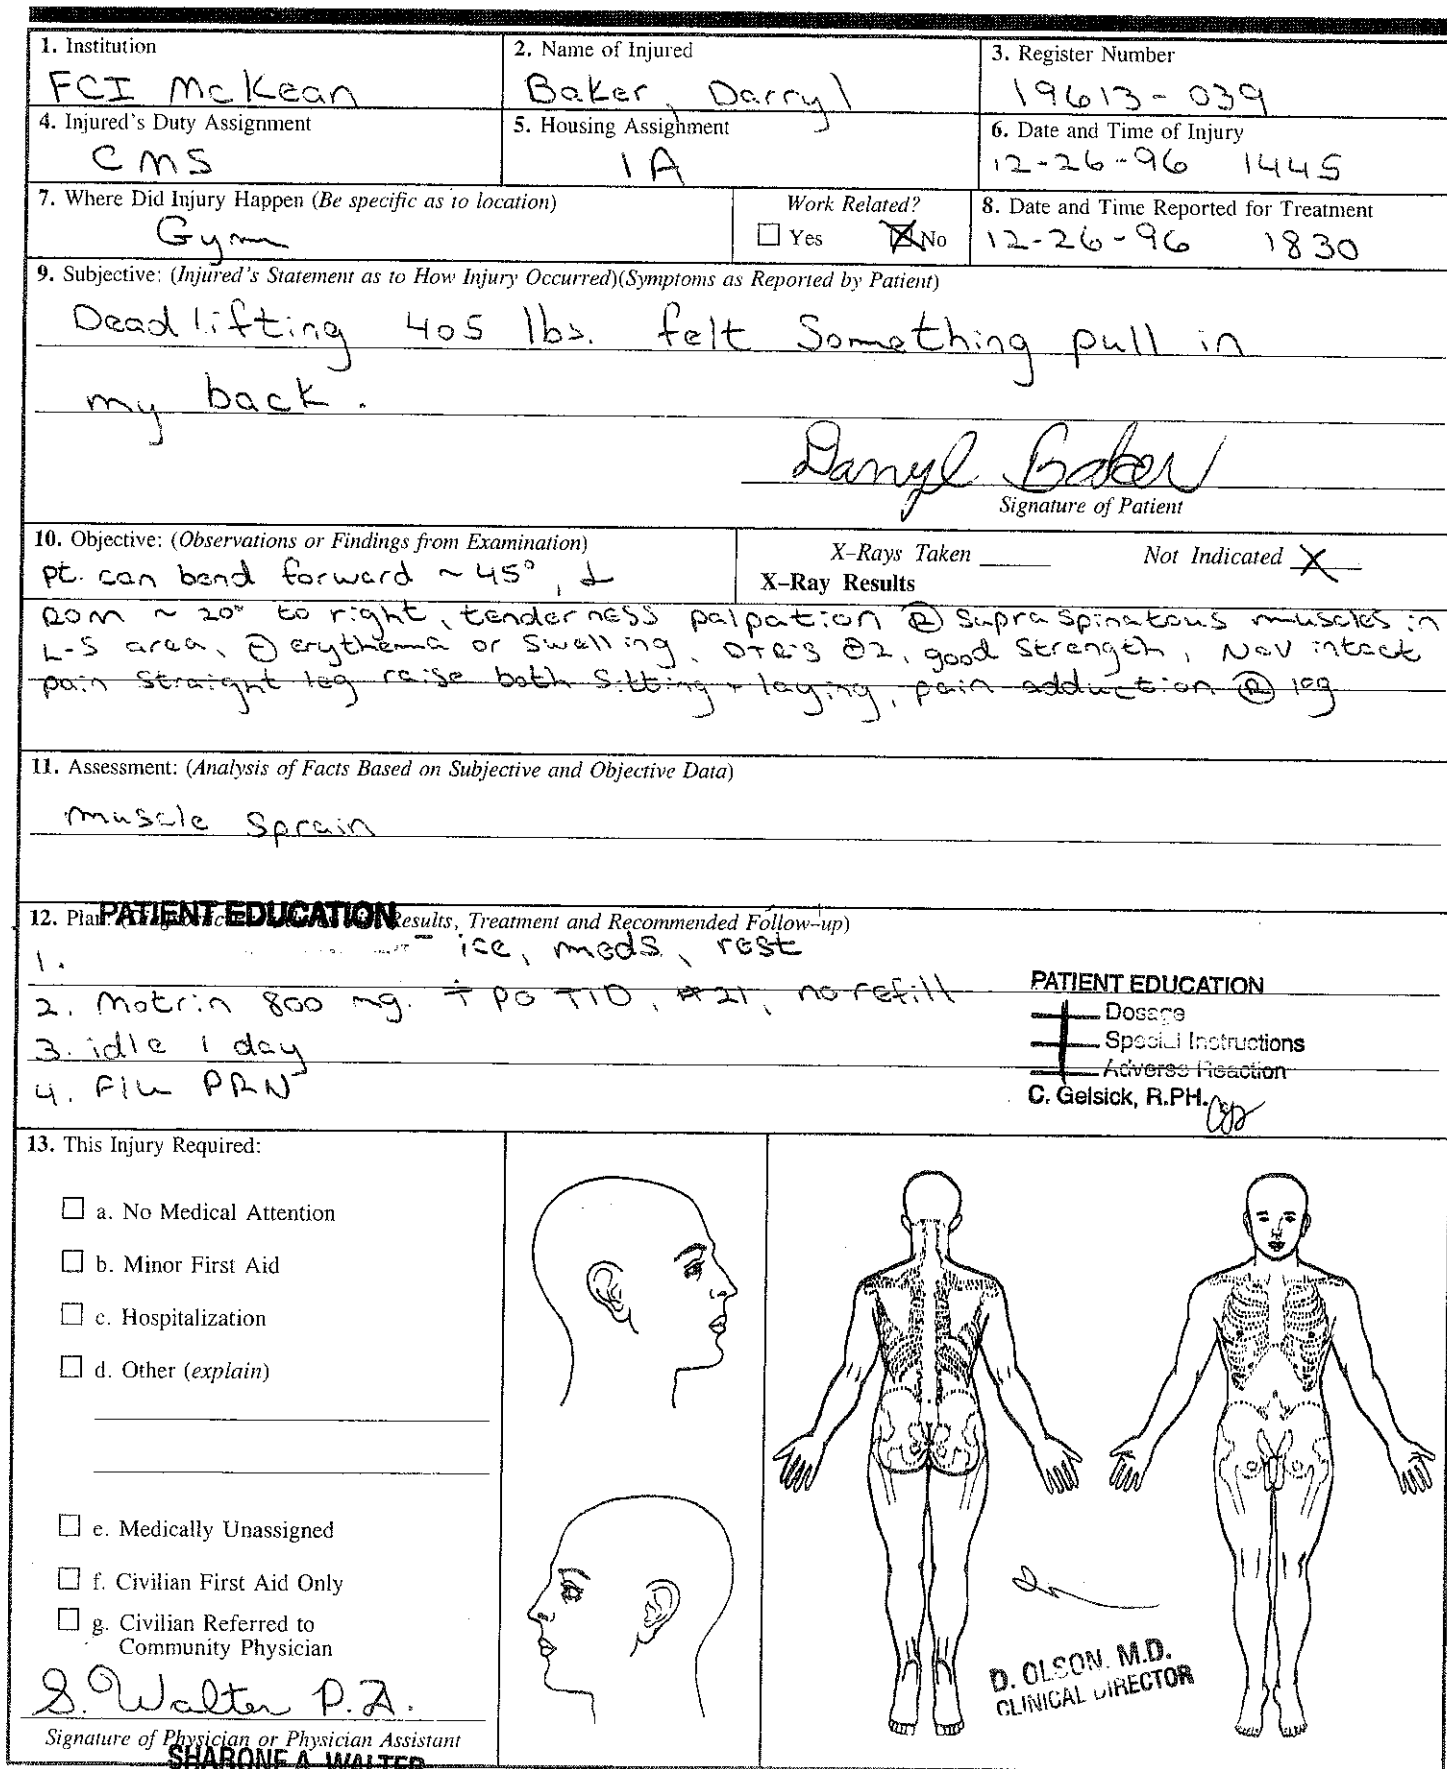 1. Institution
FCI McKean
2. Name of Injured
Baker, Darryl
3. Register Number
19613-039
4. Injured's Duty Assignment
CMS
5. Housing Assignment
1A
6. Date and Time of Injury
12-26-96 1445
7. Where Did Injury Happen (Be specific as to location)
Gym
Work Related?
☐ Yes ☒ No
8. Date and Time Reported for Treatment
12-26-96 1830
9. Subjective: (Injured's Statement as to How Injury Occurred)(Symptoms as Reported by Patient)
Dead lifting 405 lbs. felt Something pull in
my back.
Darryl Baker
Signature of Patient
10. Objective: (Observations or Findings from Examination)
pt. can bend forward ~ 45°, ↓
X-Rays Taken
Not Indicated X
X-Ray Results
ROM ~ 20° to right, tenderness palpation Ⓡ Supra Spinatous muscles in
L-S area, ⊖ erythema or Swelling, DTR's ⊕2, good Strength, N&V intact
pain Straight leg raise both Sitting + laying, pain adduction Ⓡ leg
11. Assessment: (Analysis of Facts Based on Subjective and Objective Data)
muscle Sprain
12. Plan: PATIENT EDUCATION Results, Treatment and Recommended Follow-up)
1. - ice, meds, rest
2. Motrin 800 mg. T PO TID, #21, no refill
3. idle 1 day
4. F/u PRN
PATIENT EDUCATION
Dosage
Special Instructions
Adverse Reaction
C. Gelsick, R.PH.
13. This Injury Required:
☐ a. No Medical Attention
☐ b. Minor First Aid
☐ c. Hospitalization
☐ d. Other (explain)
☐ e. Medically Unassigned
☐ f. Civilian First Aid Only
☐ g. Civilian Referred to
Community Physician
S. Walter P.A.
Signature of Physician or Physician Assistant
SHARONE A. WALTER
D. OLSON, M.D.
CLINICAL DIRECTOR